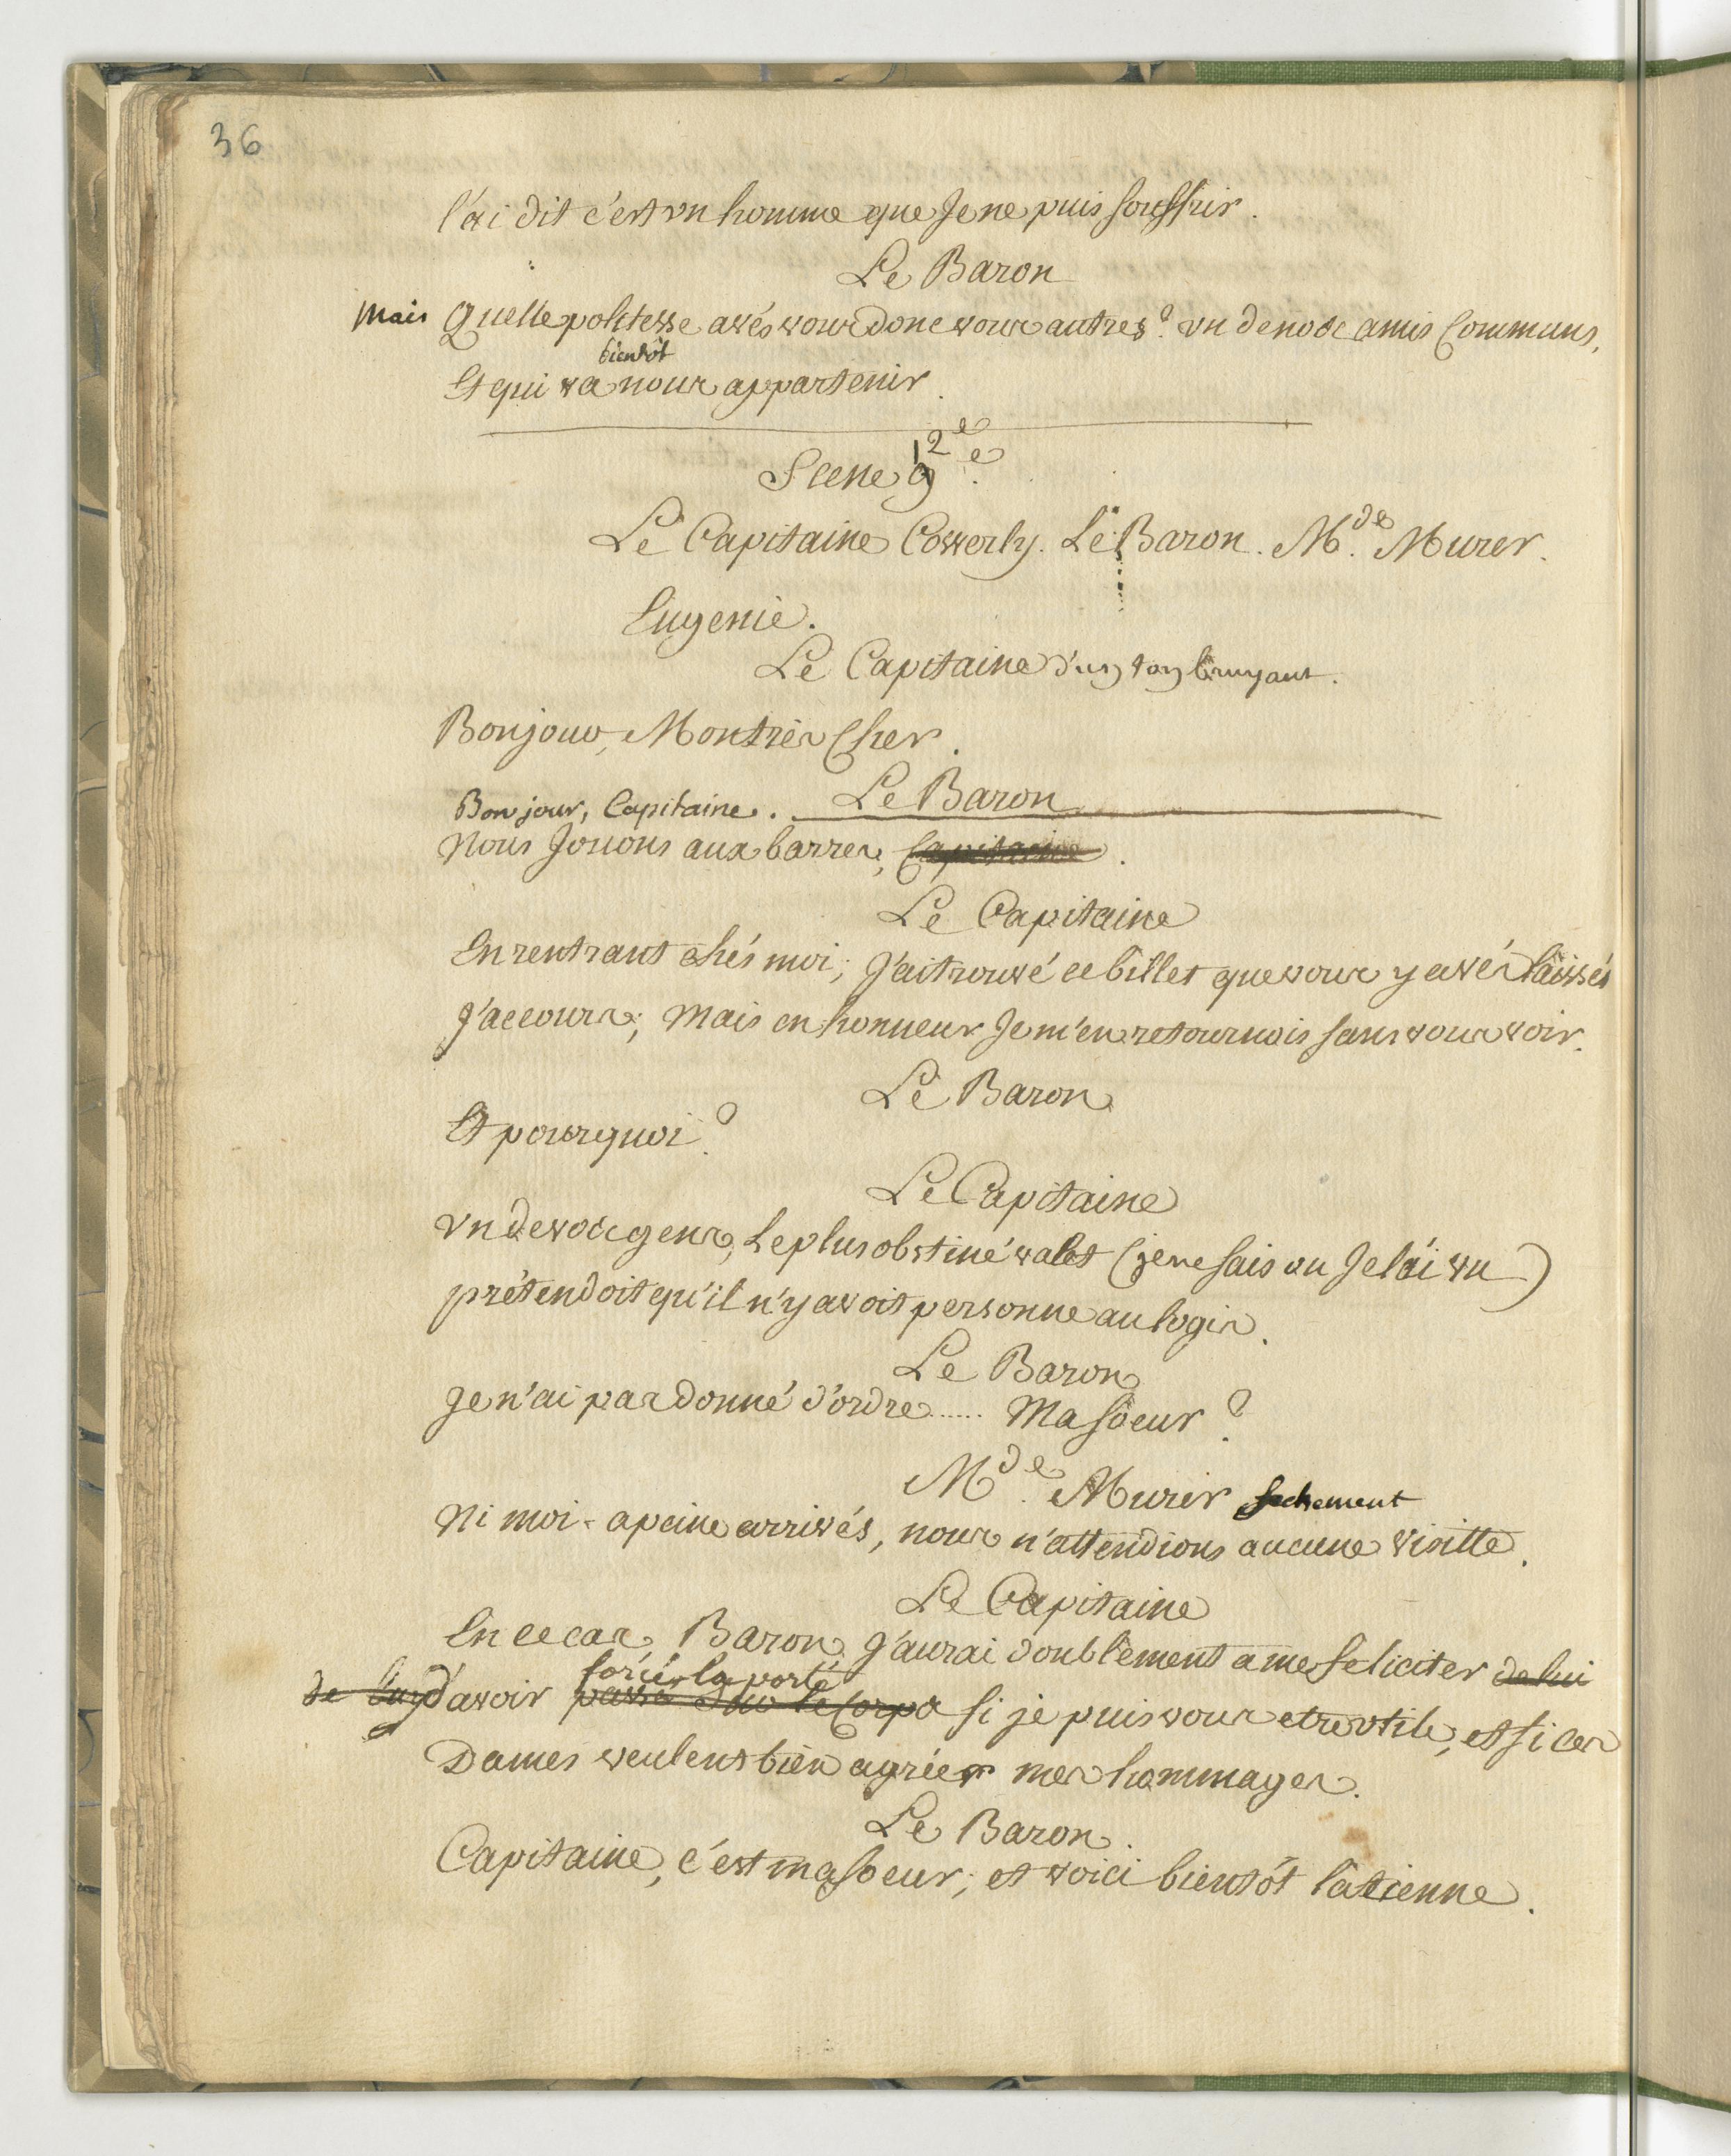 36
l'ai dit c'est un homme que Je ne puis souffrir.
Le Baron
Mais Quelle politesse avés vous donc vous autres? un de nos amis Communs,
bientôt
Et qui va nous appartenir.
Scene 9e 12e
Le Capitaine Cowerly. Le Baron. Mde. Murer.
Eugenie.
Le Capitaine d'un ton bruyant.
Bonjour, Mon très Cher.
Le Baron
Bonjour, Capitaine.
Nous Jouons aux barres, Capitaine.
Le Capitaine
En rentrant chés moi; J'ai trouvé ce billet que vous y avés laissés
J'accours; Mais en honneur Je m'en retournois sans vous voir.
Le Baron
Et pourquoi?
Le Capitaine
un de vos gens, Le plus obstiné valet (je ne sais ou Je l'ai vu)
prétendoit qu'il n'y avoit personne au logis.
Le Baron
Je n'ai pas donné d'ordre...... Ma sœur?
Mde. Murer sechement
Ni moi - a peine arrivés, nous n'attendions aucune visitte.
Le Capitaine
En ce cas, Baron, J'aurai doublement a me feliciter de lui
forcé la porte
de luy d'avoir passé sur le Corps si je puis vous etre utile, et si ces
Dames veulent bien agréer mes hommages.
Le Baron.
Capitaine, c'est ma sœur; et voici bientôt la tienne.